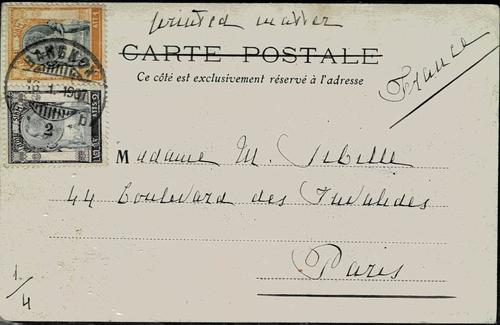 printed matter
CARTE POSTALE
Ce côté est exclusivement réservé à l'adresse
France
BANGKOK
1.1907
D
2
Madame M. Sibille
44 Boulevard des Invalides
Paris
1/4